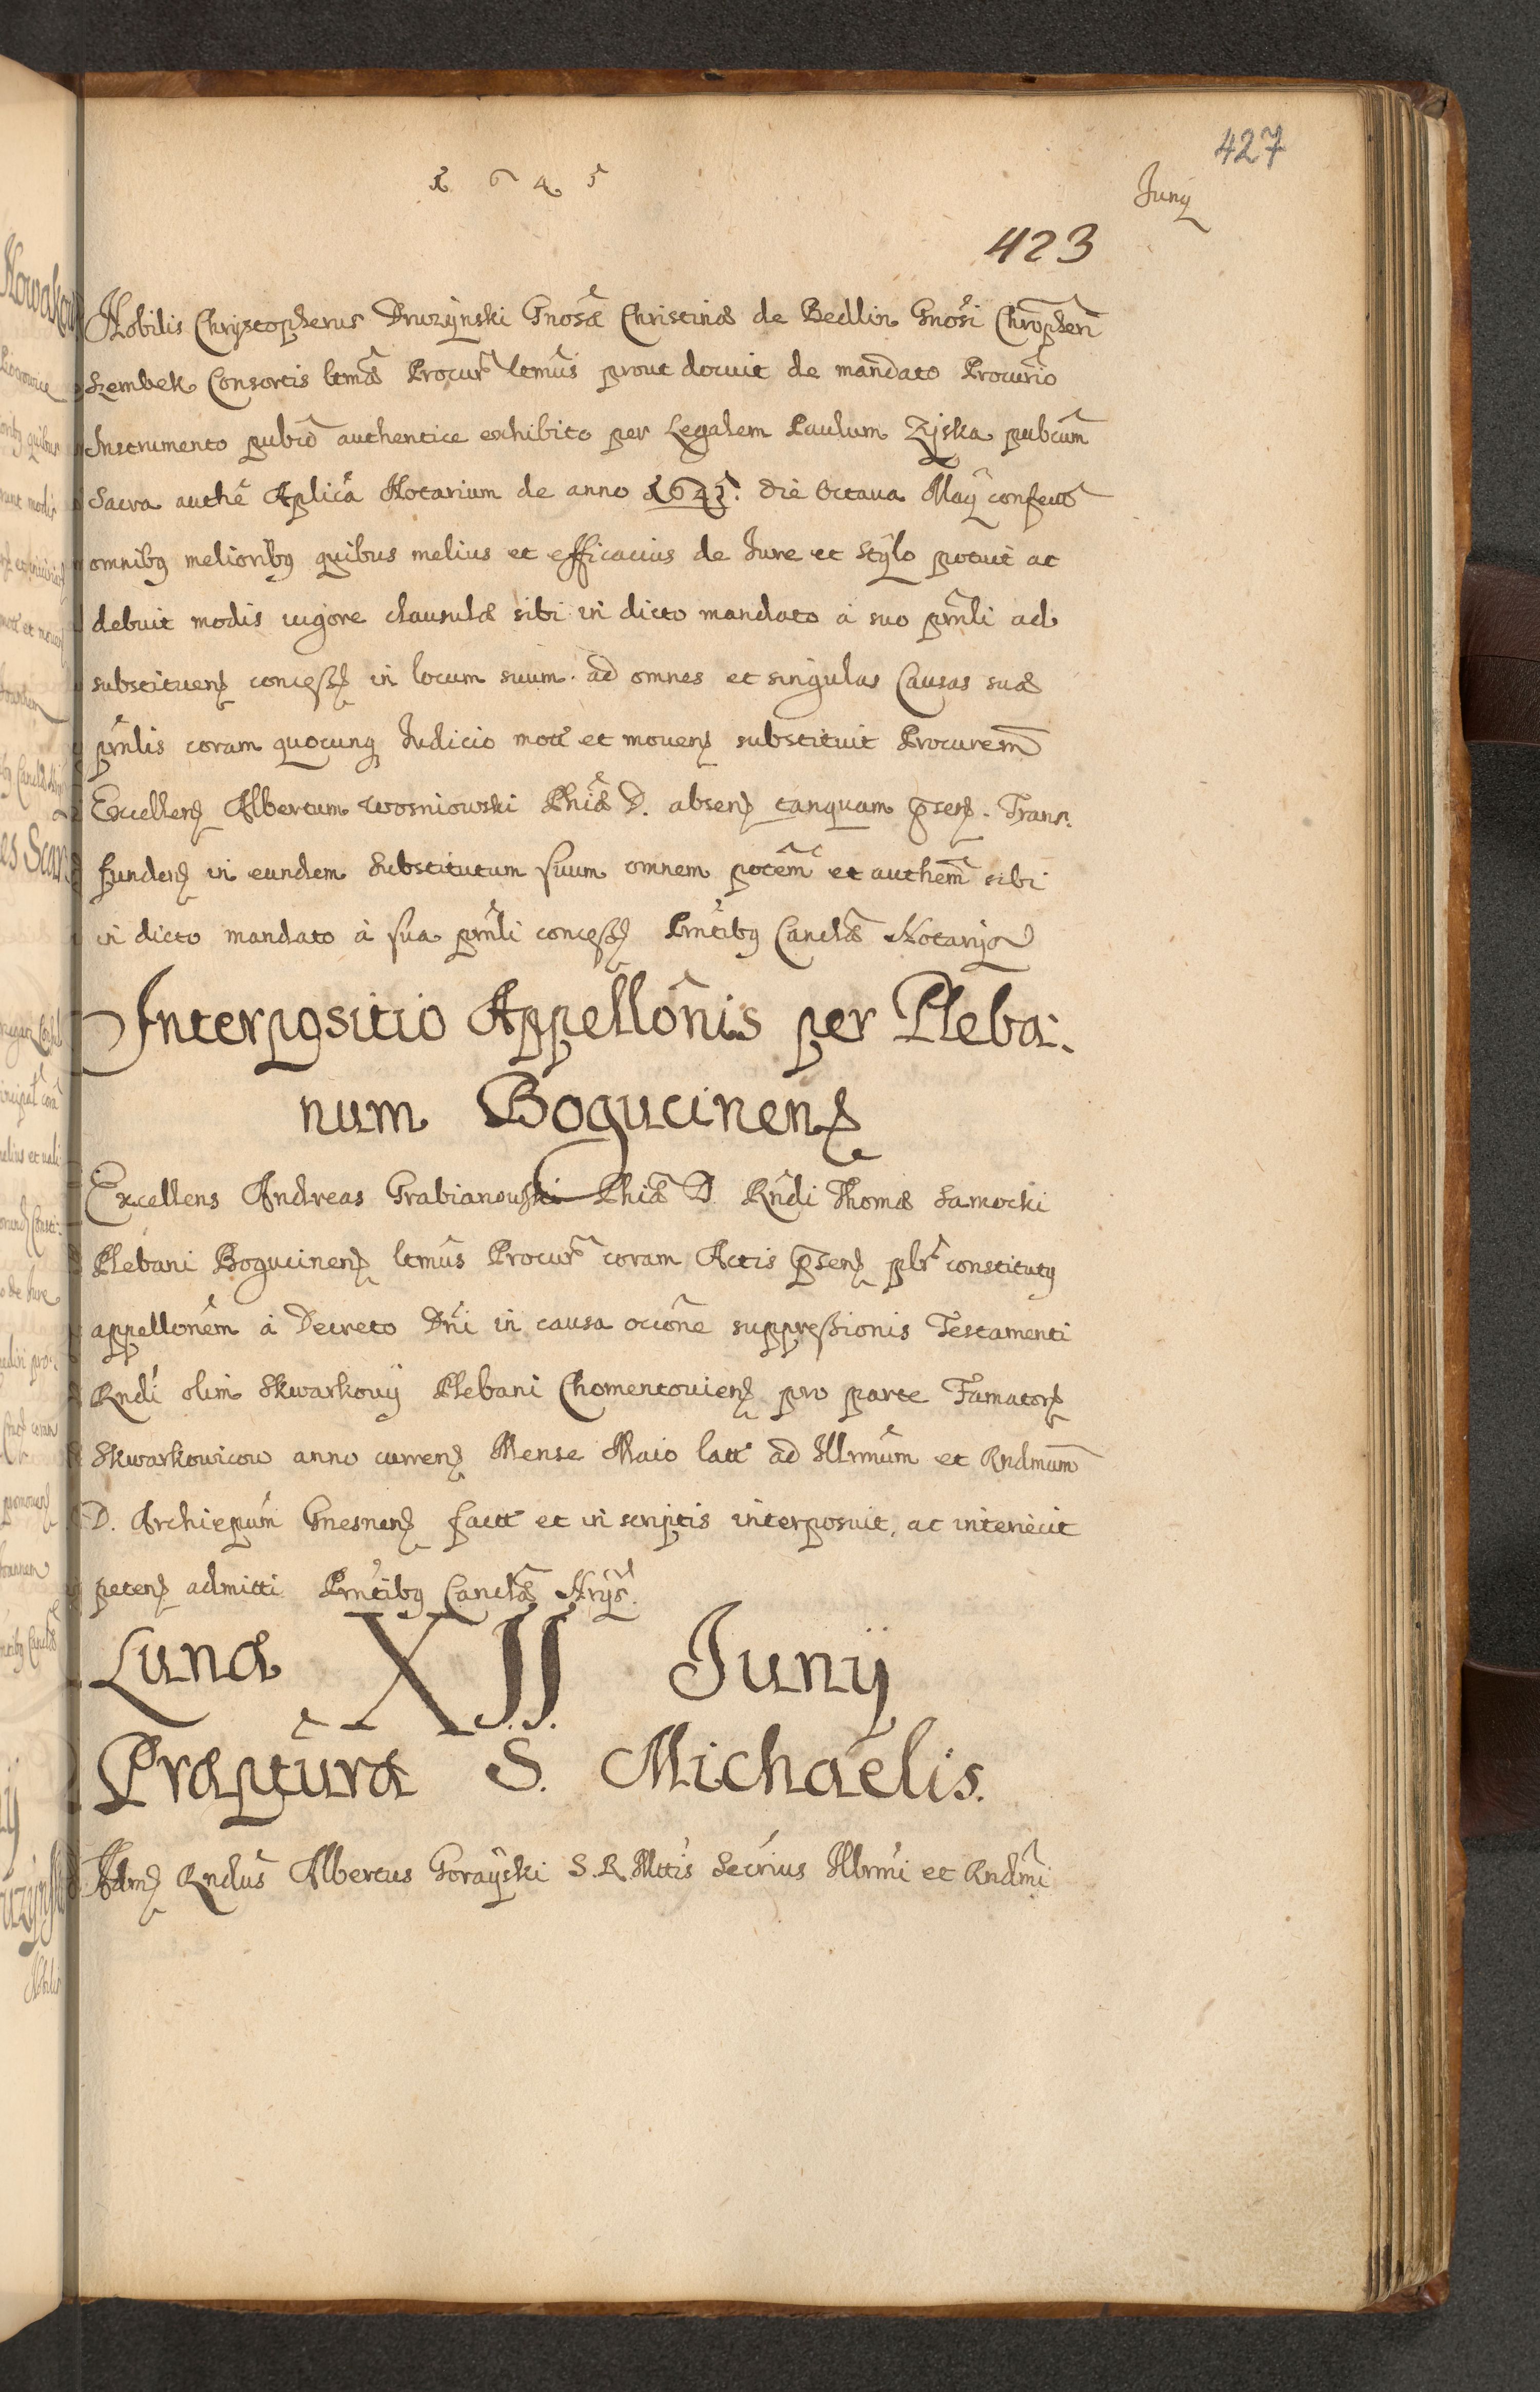 427
1645
Junij
423
Nobilis Chrystopherus Druzÿnski Gnosæ Christinæ de Bedlin Gnosi Chropheri
Szembek Consortis ltmæ Procur ltmus prout docuit de mandato Procurio
Instrumento publco authentice exhibito per Legalem Paulum Zyska pubcum
Sacra authe Aplica Notarium de anno 1645. die Octaua Maij confecto
omnibq melioribq quibus melius et efficacius de Jure et Stÿlo potuit ac
debuit modis uigore clausulæ sibi in dicto mandato à suo prnli ad
substituen concess in locum suum ad omnes et singulas Causas suæ
prnlis coram quocunq Judicio mott et mouen substituit Procurem
Excellen Albertum Wosniowski Phiæ D. absen tanquam psen. Trans:
funden in eundem Substitutum suum omnem potem et authem sibi
in dicto mandato à sua prnli concess Prntibq Canclæ Notarijs
Interpositio Appellonis per Pleba:
num Bogucinen
Excellens Andreas Grabianowski Phiæ D. Rndi Thomæ Samocki
Plebani Bogucinen ltmus Procur coram Actis psen plr constitutq
appellonem à Decreto Dni in causa ocione suppressionis Testamenti
Rndi olim Skwarkowij Plebani Chomentouien pro parte Famator
Skwarkowicow anno curren Mense Maio latt ad Illrmum et Rndmum
D. Archiepum Gnesnen factt et in scriptis interposuit, ac interiecit
peten admitti Prntibq Canclæ Nrijs.
Lunæ XII Junij
Præptura S. Michaelis.
Adm Rndus Albertus Gorayski S. R. Mttis Secrius Illrmi et Rndmi